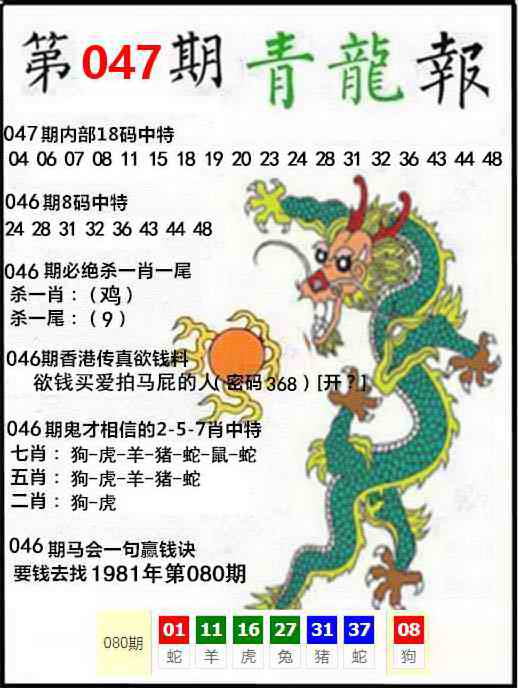 第047期青龍報
047期内部18码中特
04 06 07 08 11 15 18 19 20 23 24 28 31 32 36 43 44 48
046期8码中特
24 28 31 32 36 43 44 48
046 期必绝杀一肖一尾
杀一肖：（鸡）
杀一尾：（9）
046期香港传真欲钱料
欲钱买爱拍马屁的人（密码368）[开？]
046期鬼才相信的2-5-7肖中特
七肖：狗-虎-羊-猪-蛇-鼠-蛇
五肖：狗-虎-羊-猪-蛇
二肖：狗-虎
046 期马会一句赢钱诀
要钱去找1981年第080期
080期 01 11 16 27 31 37 08
蛇 羊 虎 兔 猪 蛇 狗